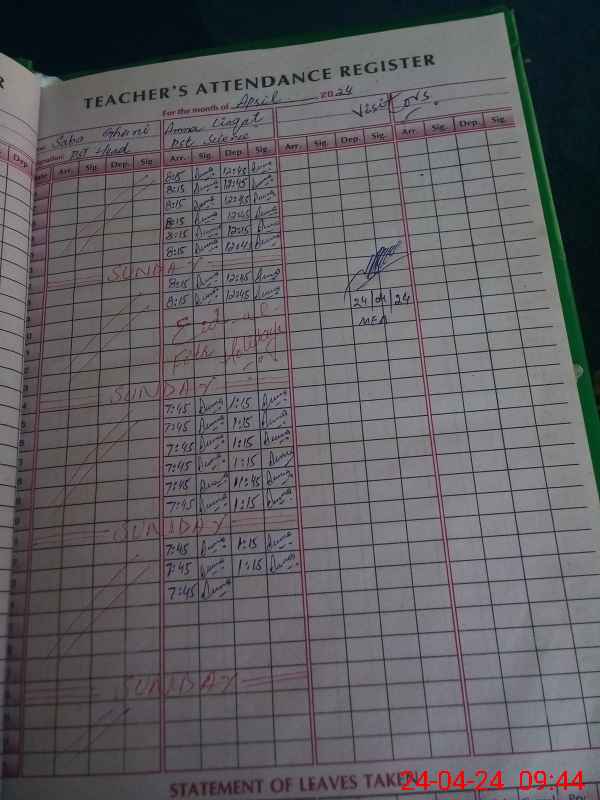 TEACHER'S ATTENDANCE REGISTER
For the month of April 2024
Saba Ghani Amna Liaqat Visit
PST Science
Arr. Sig. Dep. Sig. Arr. Sig. Dep. Sig. Arr. Sig. Dep. Sig. Arr. Sig. Dep. Sig.
8:15 12:45
8:15 12:45
8:15 12:45
8:15 12:45
8:15 12:15
8:15 12:45
SUNDAY
8:15 12:45
8:15 12:45
24 04 24
MEA
Holidays
SUNDAY
7:45 1:15
7:45 1:15
7:45 1:15
7:45 1:15
7:45 11:45
7:45 1:15
SUNDAY
7:45 1:15
7:45 1:15
7:45
SUNDAY
STATEMENT OF LEAVES TAKEN
24-04-24 09:44